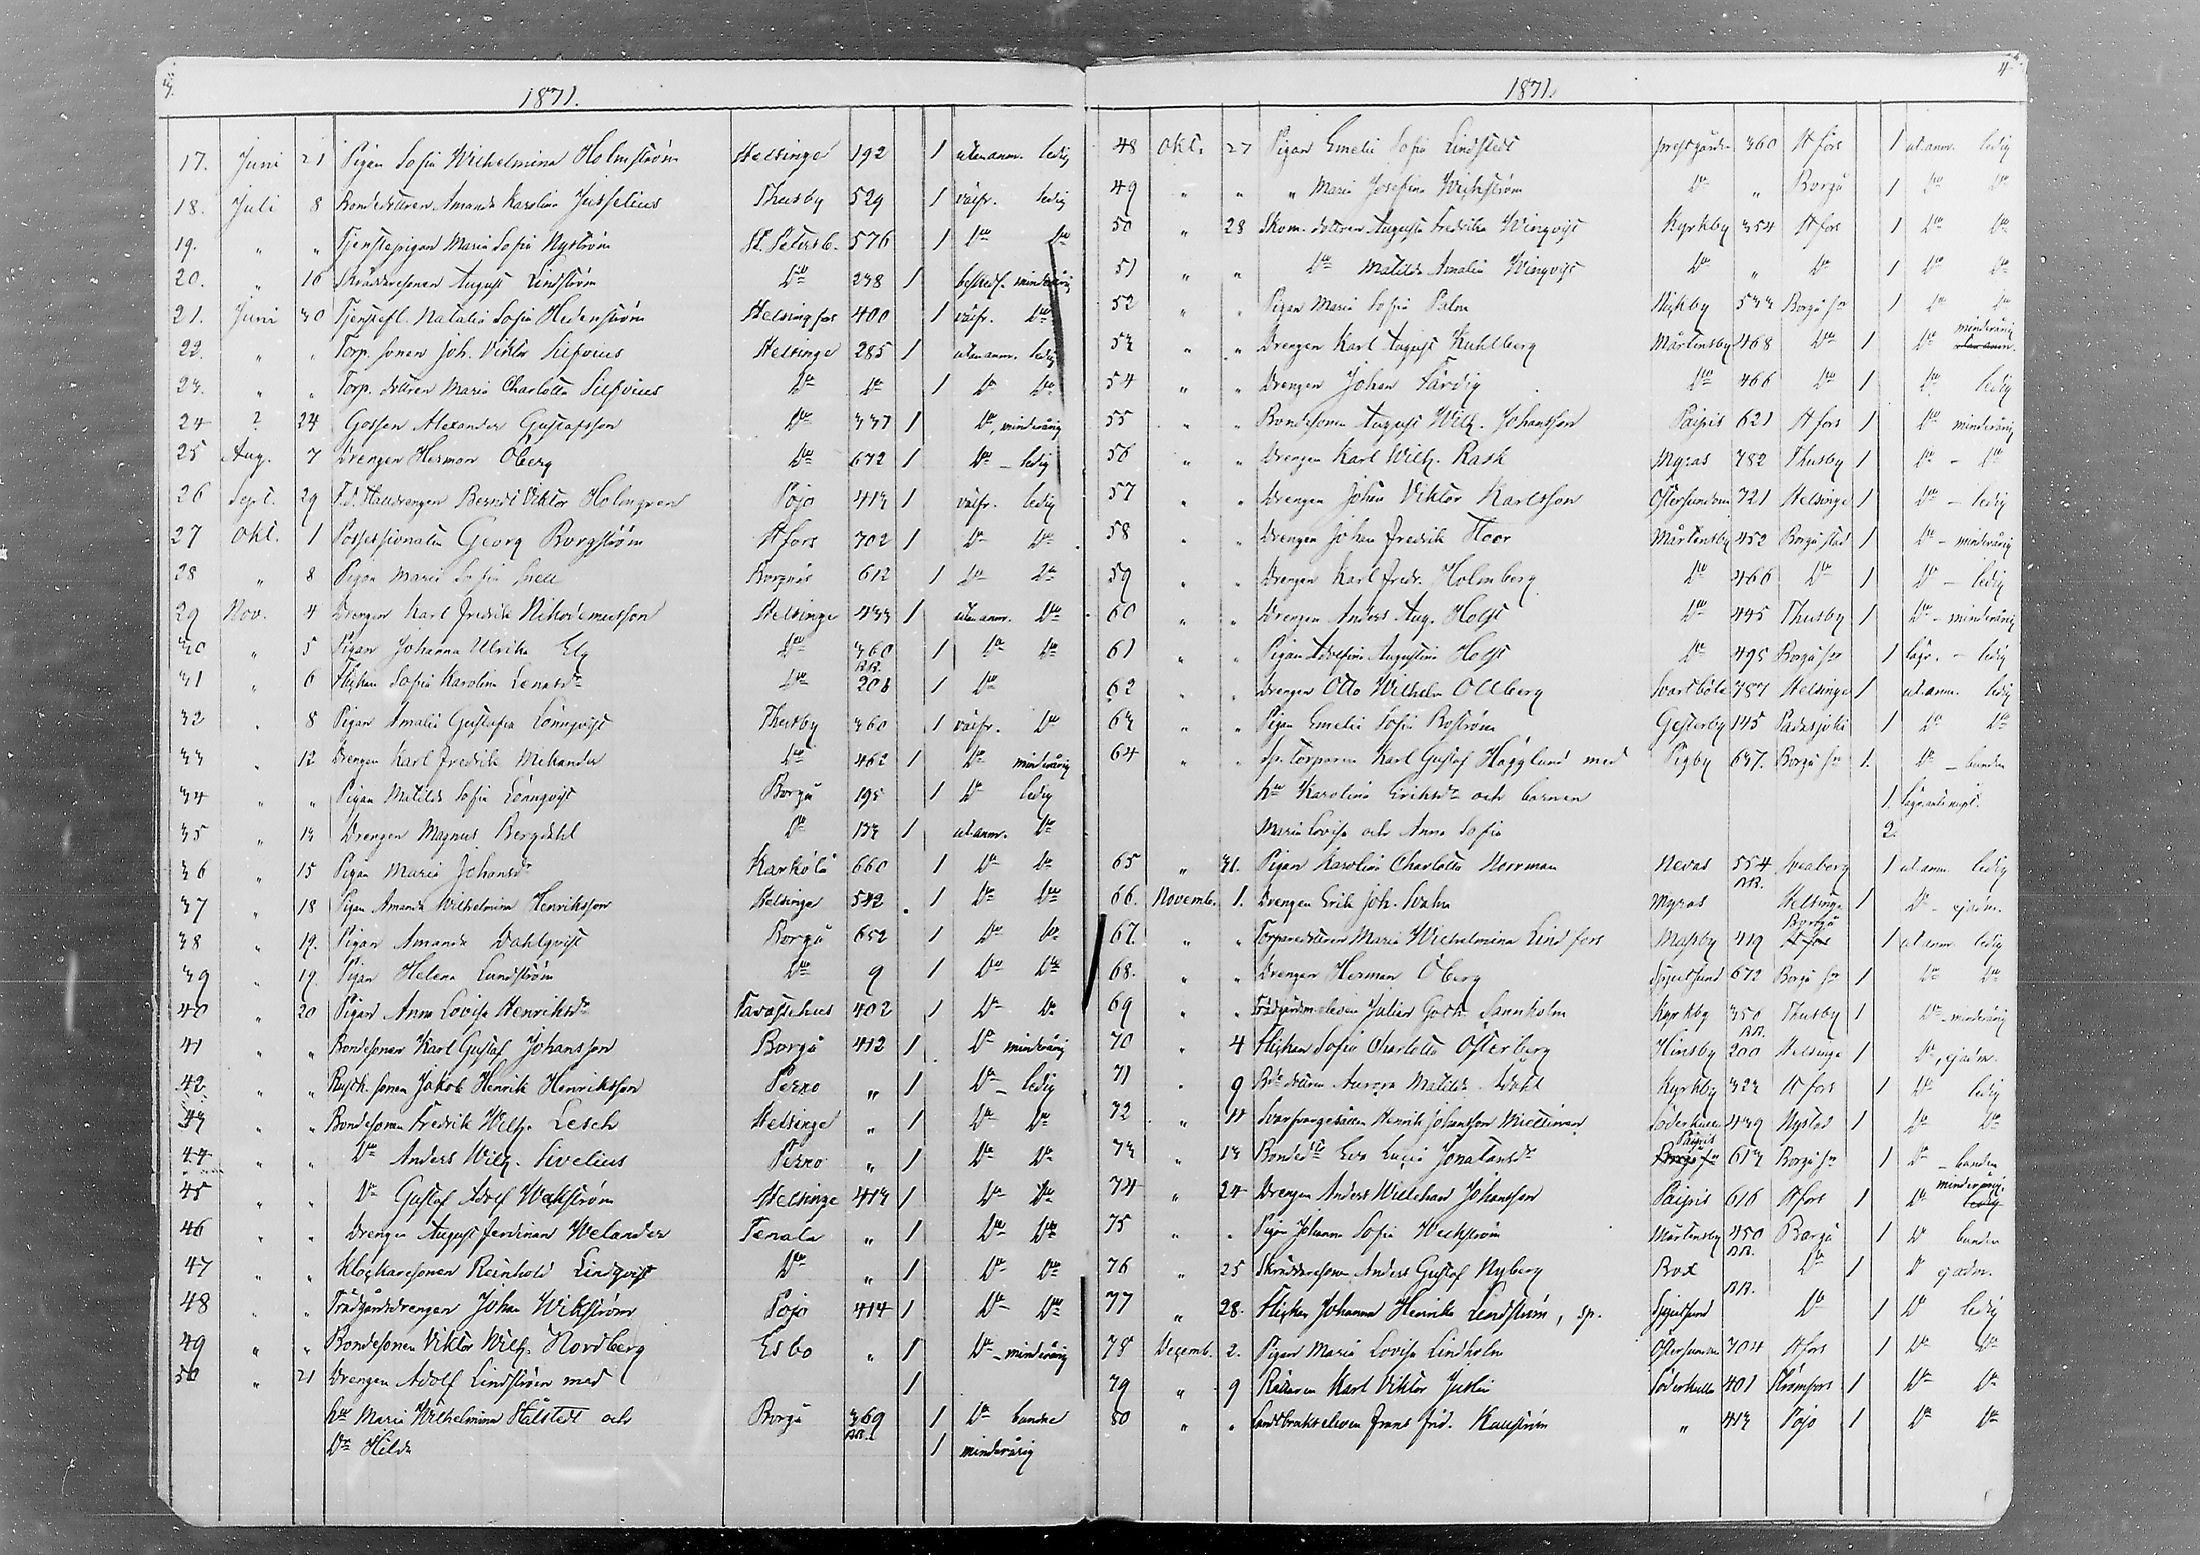 1871.
17. Juni 21 Pigan Sofia Wilhelmina Holmström Helsinge 192 1 utan anm. ledig
18. Juli 8 Bondedottren Amanda Karolina Jusselius Thusby 529 1 välfr. ledig
19. " " Tjenstepigan Maria Sofia Nyström St. Petersb. 576 1 Do Do
20. " 16 Skräddaresonen August Lindström Do 238 1 minderårig
21. Juni 30 Tjenstefl. Natalia Sofia Hedenström Helsingfors 400 1 välfr. Do
22. " " Torp. sonen Joh. Viktor Silfvius Helsinge 285 1 utan anm. ledig
23. " " Torp. dottren Maria Charlotta Silfvius Do Do 1 Do Do
24 ? 24 Gossen Alexander Gustafsson Do 337 1 Do, minderårig
25 Aug. 7 Drengen Herman Öberg Do 672 1 Do - ledig
26 Sept. 29 F.d. Stalldrengen Berndt Viktor Holmgren Pojo 413 1 välfr. ledig
27 Okt. 1 Possessionaten Georg Borgström Hfors 702 1 Do Do
28 " 8 Pigan Maria Sofia Snell Borgnäs 612 1 Do Do
29 Nov. 4 Drengen Karl Fredrik Nikodemusson Helsinge 433 1 utan anm. Do
30 " 5 Pigan Johanna Ulrika Elg Do 360 1 Do Do
31 " 6 Flickan Sofia Karolina Lenasdr Do NB. 206 1 Do
32 " 8 Pigan Amalia Gustafva Lönnqvist Thusby 360 1 välfr. Do
33 " 12 Drengen Karl Fredrik Mekander Do 462 1 Do minderårig
34 " " Pigan Matilda Sofia Lönnqvist Borgå 195 1 Do ledig
35 " 13 Drengen Magnus Bergdahl Do 133 1 ut. anm. Do
36 " 15 Pigan Maria Johansdr Karkölä 660 1 Do Do
37 " 18 Pigan Amanda Wilhelmina Henriksson Helsinge 542 1 Do Do
38 " 19. Pigan Amanda Dahlqvist Borgå 652 1 Do Do
39 " 19. Pigan Helena Lundström Do 9 1 Do Do
40 " 20 Pigan Anna Lovisa Henriksdr Tavastehus 402 1 Do Do
41 " " Bondesonen Karl Gustaf Johansson Borgå 412 1 Do minderårig
42 " " Rusth. sonen Jakob Henrik Henriksson Perno " 1 Do - ledig
43 " " Bondesonen Fredrik Wilh. Lesch Helsinge " 1 Do Do
44 " " Do Anders Wilh. Sivelius Perno " 1 Do Do
45 " " Do Gustaf Adolf Weckström Helsinge 413 1 Do Do
46 " " Drengen August Ferdinan Welander Tenala " 1 Do Do
47 " " Klockaresonen Reinhold Lindqvist Do " 1 Do Do
48 " " Trädgårdsdrengen Johan Wikström Pojo 414 1 Do Do
49 " " Bondesonen Viktor Wilh. Nordberg Esbo " 1 Do - minderårig
50 " 21 Drengen Adolf Lindström med 1
hu Maria Wilhelmina Stålstedt och Borgå 369 1 Do bundne
Dr Hilda NB. 1 minderårig
1871.
48 Okt. 27 Pigan Emelie Sofia Lindstedt prestgården 360 Hfors 1 ut. anm. ledig
49 " " " Maria Josefina Wickström Do " Borgå 1 Do Do
50 " 28 Skom. dottren Augusta Fredrika Wingqvist Kyrkby 354 Hfors 1 Do Do
51 " " Do Matilda Amalia Wingqvist Do " Do 1 Do Do
52 " " Pigan Maria Sofia Palm Nickby 533 Borgå sn 1 Do Do
53 " " Drengen Karl August Kuhlberg Mårtensby 468 Do 1 Do minderårig utan anm.
54 " " Drengen Johan Färdig Do 466 Do 1 Do ledig
55 " " Bondesonen August Wilh. Johansson Paipis 621 Hfors 1 Do minderårig
56 " " Drengen Karl Wilh. Rask Myras 782 Thusby 1 Do - Do
57 " " Drengen Johan Viktor Karlsson Östersundom 721 Helsinge 1 Do - ledig
58 " " Drengen Johan Fredrik Hoor Mårtensby 452 Borgå stad 1 Do - minderårig
59 " " Drengen Karl Fredr. Holmberg Do 466 Do 1 Do - ledig
60 " " Drengen Anders Aug. Holst Do 495 Thusby 1 Do - minderårig
61 " " Pigan Adolfina Augustina Holst Do 495 Borgå sn 1 - ledig
62 " " Drengen Otto Wilhelm Ollberg Svartböle 787 Helsinge 1 ut. anm. ledig
63 " " Pigan Emelie Sofia Boström Gesterby 145 Padasjoki 1 Do Do
64 " " Torparen Karl Gustaf Hägglund med Pigby 637. Borgå sn 1. Do - bunden
hu Karolina Eriksdr och barnen 1.
Maria Lovisa och Anna Sofia 2.
65 " 31. Pigan Karolina Charlotta Norrman Nevas 554 Sveaborg 1 ut. anm. ledig
66. Novemb. 1. Drengen Erik Joh. Malm Myras NB. Helsinge 1 Do - ej adm.
67. " " Torparedottren Maria Wilhelmina Lindfors Massby 419 Borgå Hfors 1 ut. anm. ledig
68. " " Drengen Herman Öberg Spjutsund 672 Borgå sn 1 Do Do
69 " " Trädgårdseleven Julius Goth. Sannholm Kyrkby 350 Thusby 1 Do - minderårig
70 " 4 Flickan Sofia Charlotta Österberg Hinsby NB. 200 Helsinge 1 Do, ej adm.
71 " 9 Bde dottren Aurora Matilda Dahl Kyrkby 323 Hfors 1 Do ledig
72 " 11 Henrik Johansson Miettinen Söderkulla 439 Nystad 1 Do Do
73 " 13 Bondedr Eva Lucia Jonatansdr Paipis Borgå sn 613 Borgå sn 1 Do - bunden
74 " 24 Drengen Anders Willehard Johansson Paipis 616 Hfors 1 Do minderårig. ledig
75 " " Pigan Johanna Sofia Weckström Mårtensby 450 Borgå 1 Do bunden
76 " 25 Skräddaresonen Anders Gustaf Nyberg Box NB. Do 1 Do ej adm.
77 " 28. Flickan Johanna Henrika Lindström, sp. Spjutsund NB. Do 1 Do ledig
78 Decemb. 2. Pigan Maria Lovisa Lindholm Östersundom 704 Hfors 1 Do Do
79 " 9 Rättaren Karl Viktor Juslin Söderkulla 401 Strömfors 1 Do Do
80 " " Landtbrukseleven Frans Frid. Kullström " 413 Pojo 1 Do Do